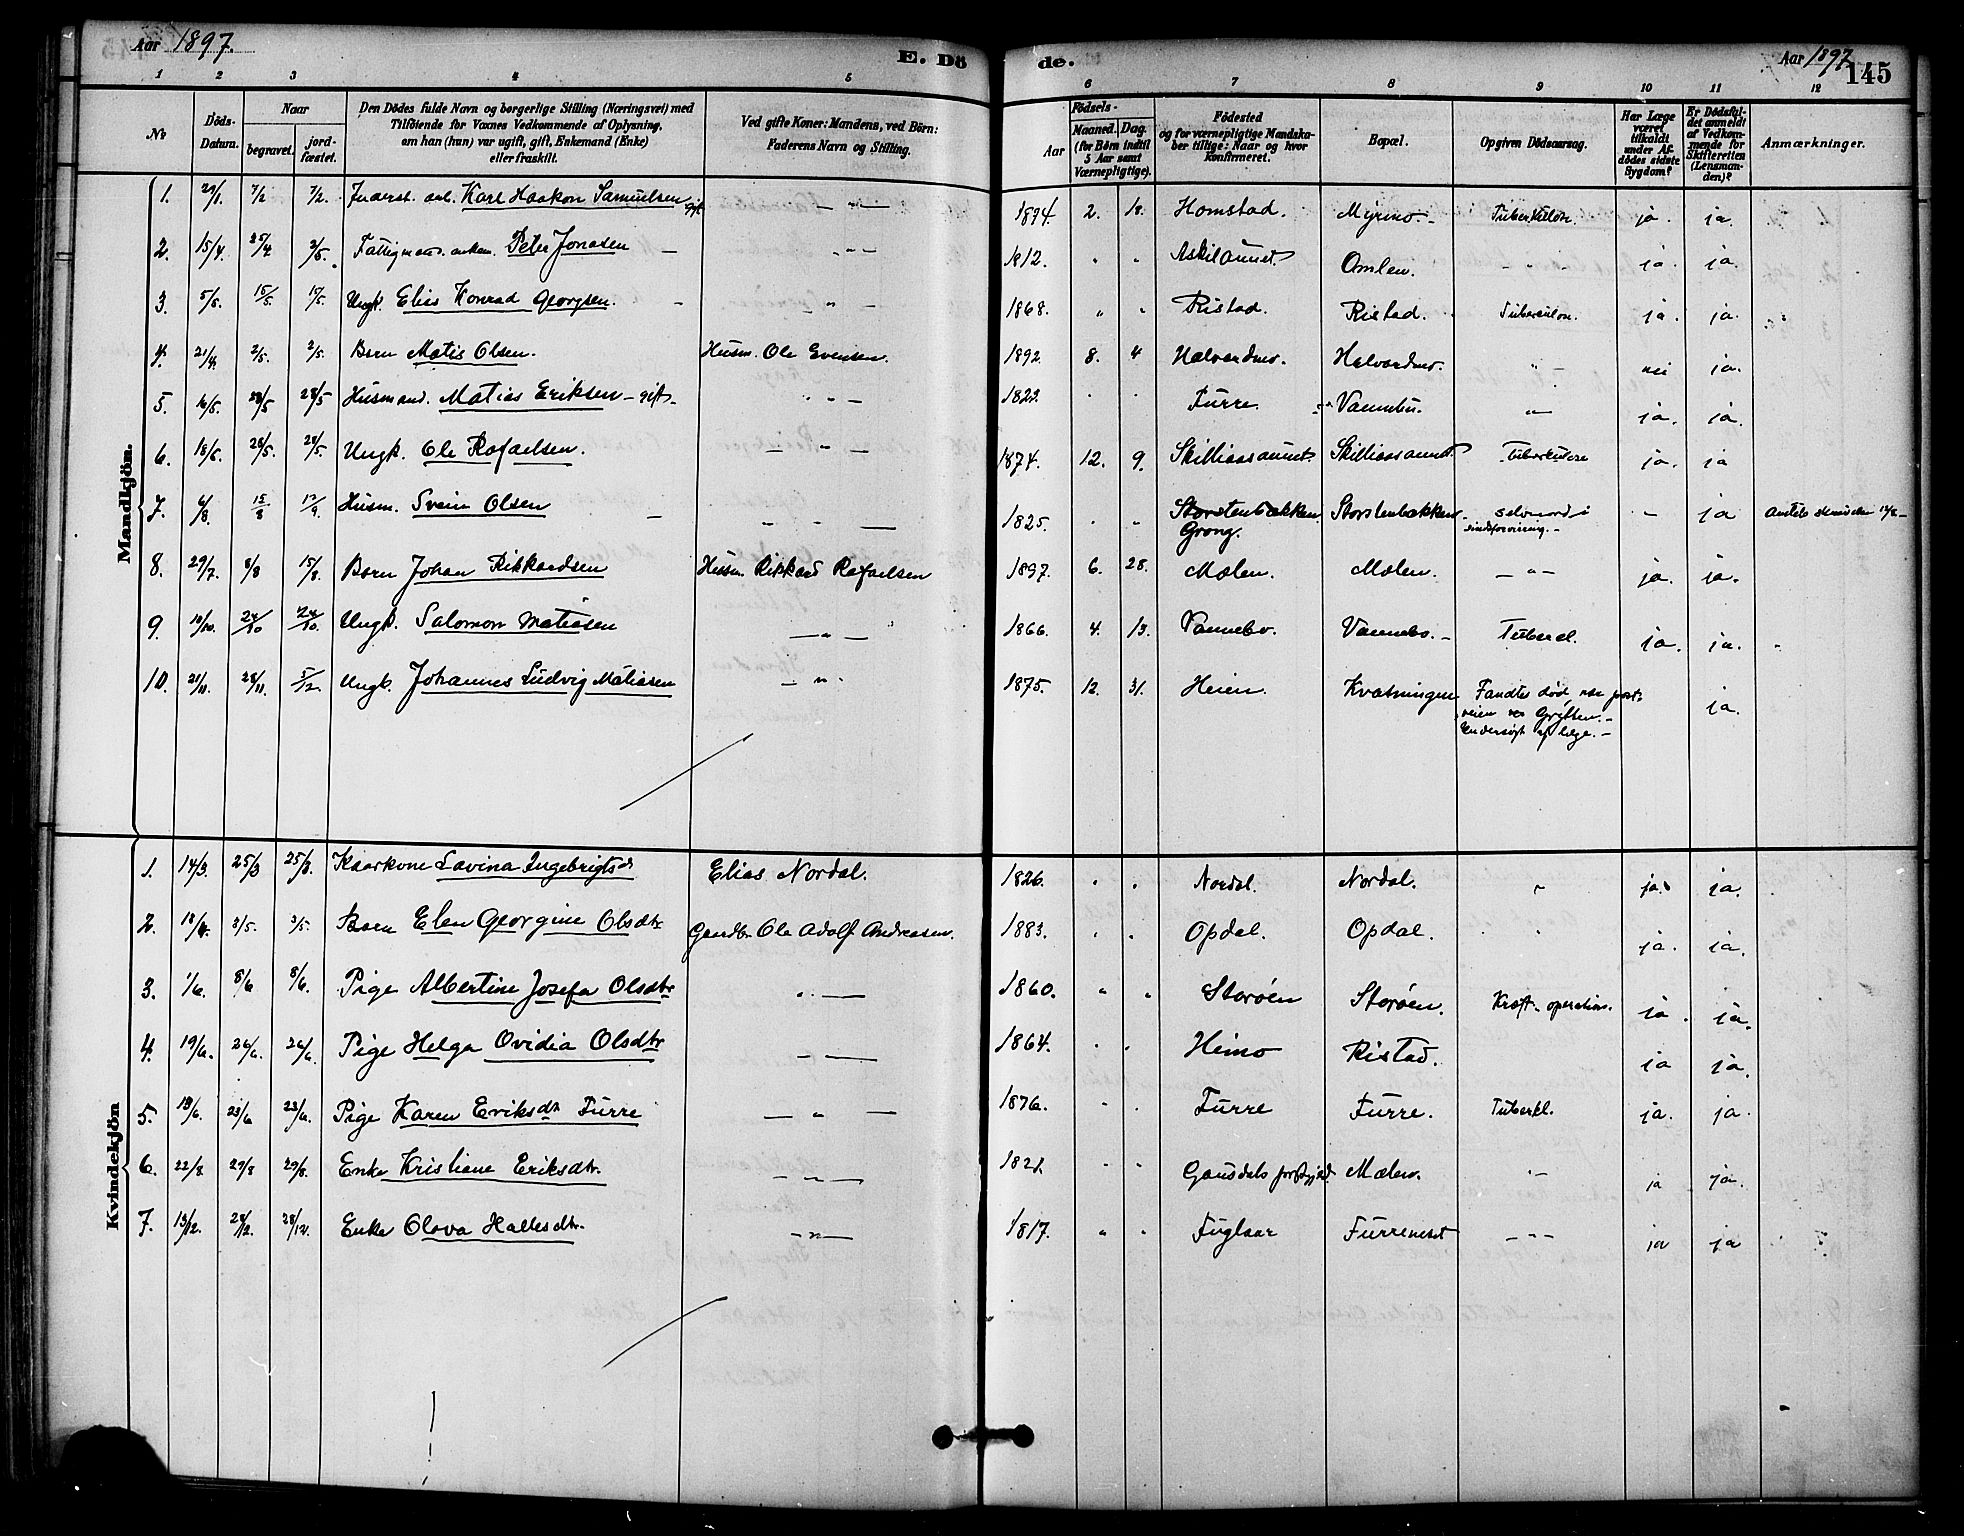 Aar 1897. E. Dö de. Aar 1897 145
1 2 3 4 5 6 7 8 9 10 11 12
No
Döds-Datum.
Naar begravet. jordfæstet.
Den Dödes fulde Navn og borgerlige Stilling (Næringsvei) med
Tilföiende for Voxnes Vedkommende af Oplysning,
om han (hun) var ugift, gift, Enkemand (Enke)
eller fraskilt.
Ved gifte Koner: Mandens, ved Börn:
Faderens Navn og Stilling.
Födsels-
Aar
Maaned. Dag.
(for Börn indtil
5 Aar samt
Værnepligtige).
Födested
og for værnepligtige Mandska-
ber tillige: Naar og hvor
konfirmeret.
Bopæl.
Opgiven Dödsaarsag.
Har Læge
været
tilkaldt
under Af-
dödes sidste
Sygdom?
Er Dödsfal-
det anmeldt
af Vedkom-
mende for
Skifteretten
(Lensman-
den)?
Anmærkninger.
Mandkjön.
1. 29/1. 7/2 7/2. Karl Haakon Samuelsen gift — " — 1894 2. 18. Homstad. Myrmo. Tuberkulose ja. ja.
2. 15/4. 25/4 2/5. Peter Jonasen — " — 1812. " " Askilaunet Omlen. - " - ja. ja.
3. 5/5. 15/5 15/5. Ungk. Elias Konrad Georgsen. — " — 1868. " " Ristad. Ristad. Tuberkulose. ja. ja.
4. 21/4. 2/5. 2/5. Barn Matis Olsen. Husm. Ole Evensen. 1892. 8. 4 Halvardmo. Halvardmo. " nei ja.
5. 16/5. 28/5 28/5 Husmand. Matias Eriksen - gift - " — 1822. . . Furre. Vannebu. " ja. ja.
6. 18/5. 28/5. 28/5. Ungk. Ole Rafaelsen. — " — 1874. 12. 9. Skilliaasaunet. Skilliaasaunet. Tuberkulose ja. ja
7. 6/8. 15/8 12/9. Husm. Svein Olsen — " " — 1825. " " Storstenbækken Storstenbækken selvmord i - ja
Grong. sindsforvirring. -
8. 29/7. 8/8 15/8. Barn Johan Rikkardsen Husm. Rikkard Rafaelsen 1897. 6. 28. Mælen. Mælen. — " — ja. ja.
9. 10/10. 24/10 24/10. Ungk. Salomon Matiasen — " — 1866. 4. 13. Vannebo. Vannebo. - Tubercl. ja. ja.
10. 21/11. 28/11. 5/12. Ungk. Johannes Ludvig Matiasen — " . 1875. 12. 31. Heien. Kvatningen Fandtes død, nær post-
veien ved Gryften. - ja.
Undersøgt af læge. -
Kvindekjön
1. 14/3. 25/3 25/3. Kaarkone Lavina Ingebrigtsdr Elias Nordal. 1826. . . Nordal. Nordal. " ja. ja.
2. 18/4. 3/5. 3/5. Barn Elen Georgine Olsdtr Gaardbr. Ole Adolf Andreasen. 1883. . . Opdal. Opdal. . ja. ja.
3. 1/6. 8/6 8/6. Pige Albertine Josefa Olsdtr " — 1860. " " Storøen Storøen. Kræft - operation. ja. ja.
4. 19/6. 26/6. 26/6. Pige Helga Ovidia Olsdtr — " — 1864. . . Heimo Ristad. ja ja.
5. 13/6. 23/6 23/6. Pige Karen Eriksdtr Furre — " — 1876. . . Furre Furre. Tuberkl. ja. ja.
6. 22/8. 29/8 29/8. Enke Kristiane Eriksdtr. — " — 1821. . . Gausdals præstgjæld. Mælen. " - ja ja.
7. 13/12. 28/12. 28/12. Enke Olava Hallesdtr. — " — 1817. " " Fuglaar Furreneset — " — ja ja